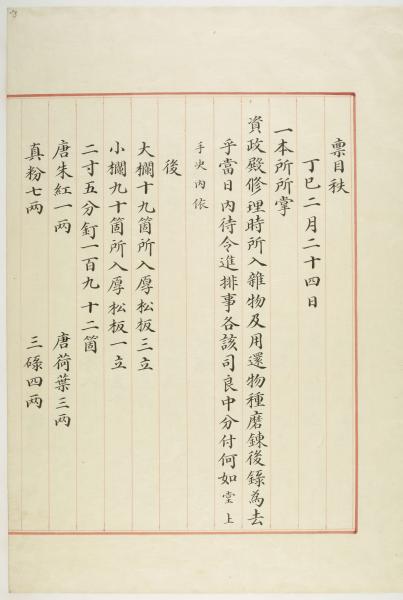 稟目秩
丁巳二月二十四日
一本所所掌
資政殿修理時所入雜物及用還物種磨鍊後錄為去
乎當日內待令進排事各該司良中分付何如 堂上
手决內依
後
大欄十九箇所入厚松板三立
小欄九十箇所入厚松板一立
二寸五分釘一百九十二箇
唐朱紅一兩 唐荷葉三兩
真粉七兩 三碌四兩